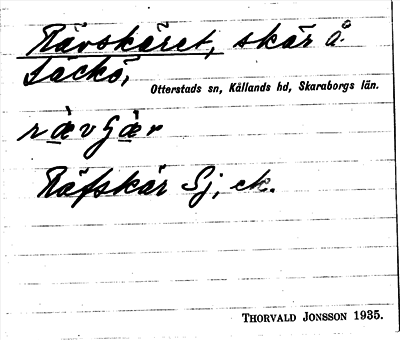 Rävskäret, skär å
Läckö,
Otterstads sn, Kållands hd, Skaraborgs län.
Räfskär Sj, ek.
THORVALD JONSSON 1935.